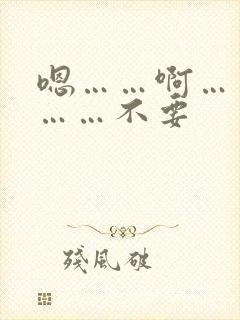 嗯……啊…
……不要
残風破